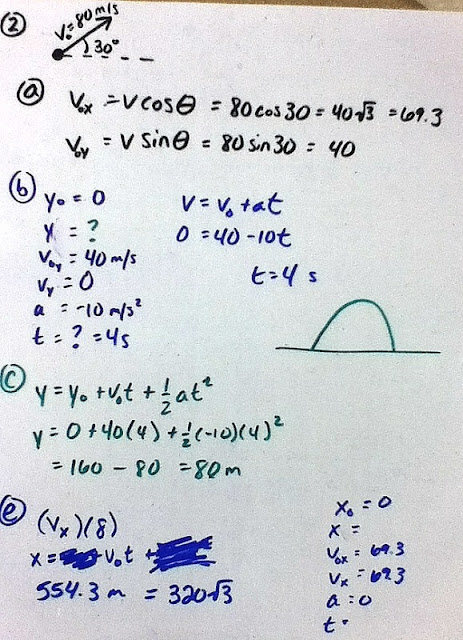 ②
V₀=80m/s
30°
ⓐ V₀ₓ = V cos θ = 80 cos 30 = 40√3 = 69.3
V₀y = V sin θ = 80 sin 30 = 40
ⓑ y₀ = 0
y = ?
V₀y = 40 m/s
Vy = 0
a = -10 m/s²
t = ? = 4s
V = V₀ + at
0 = 40 - 10t
t = 4 s
ⓒ y = y₀ + V₀t + ½at²
y = 0 + 40(4) + ½(-10)(4)²
= 160 - 80 = 80 m
ⓔ (Vₓ)(8)
x = V₀t +
554.3 m = 320√3
x₀ = 0
x =
V₀ₓ = 69.3
Vₓ = 69.3
a = 0
t =